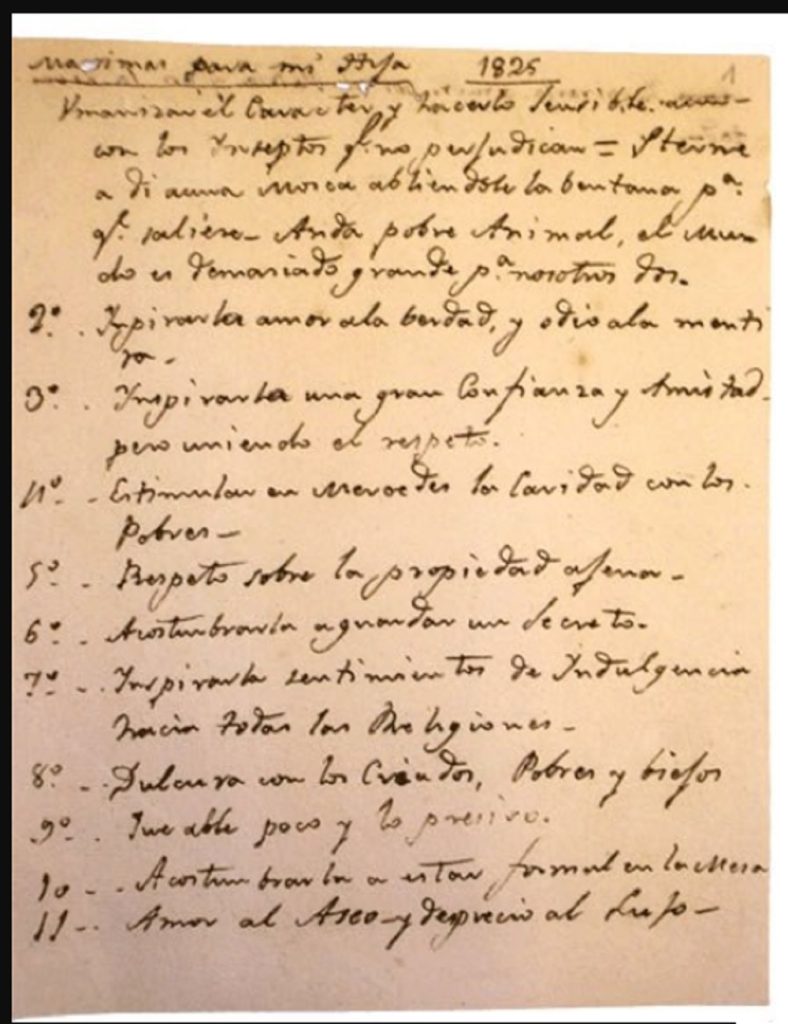 Maximas para mi Hija 1825 1
Vmanizar el Caracter y hacerlo Sensible. aun-
con los Inseptos qe. no perjudican = Sterne
a di auna Mosca abliendole la bentana pa.
qe. saliese - Anda pobre Animal, el Mun
do es demasiado grande pa. nosotros dos.
2º. Ispirarla amor ala berdad, y odio ala menti
ra -
3º. Inspirarla una gran Confianza y Amistad.
pero uniendo el respeto.
4º. - Estimular en Mercedes la Caridad con los.
Pobres -
5º. - Respeto sobre la propiedad ajena -
6º. - Acostumbrarla aguardar un Secreto.
7º. - Inspirarla sentimientos de Indulgencia
hacia todas las Religiones -
8º - Dulzura con los Criados, Pobres y biejos
9º. Que able poco y lo presiso.
10 - . Acostumbrarla a estar formal en la Mesa
11 - . Amor al Aseo - y desprecio al Lujo -